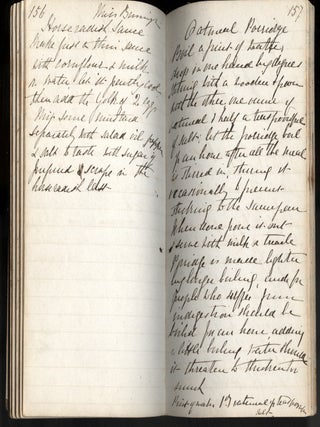 156
Horseradish Sauce
Make just a thin sauce
with cornflour & milk
or water let it
then add the yolk of 2 eggs
Mix some mustard
separately with salad oil
& salt to taste with sugar
scrape in the
horseradish last
157
Oatmeal Porridge
Boil a pint of water
in one hand by degrees
stirring with a wooden spoon
with the other one ounce of
oatmeal & half a teaspoonful
of salt let the porridge boil
for an hour after all the meal
is stirred in, stirring it
occasionally to prevent
sticking to the saucepan
When done pour it out
& serve with milk or treacle
Porridge is made lighter
by longer boiling, and for
people who suffer from
indigestion should be
boiled for an hour, adding
a little boiling water should
it threaten to thicken too
much
Pint of water 1 oz oatmeal ½ teaspoonful
salt